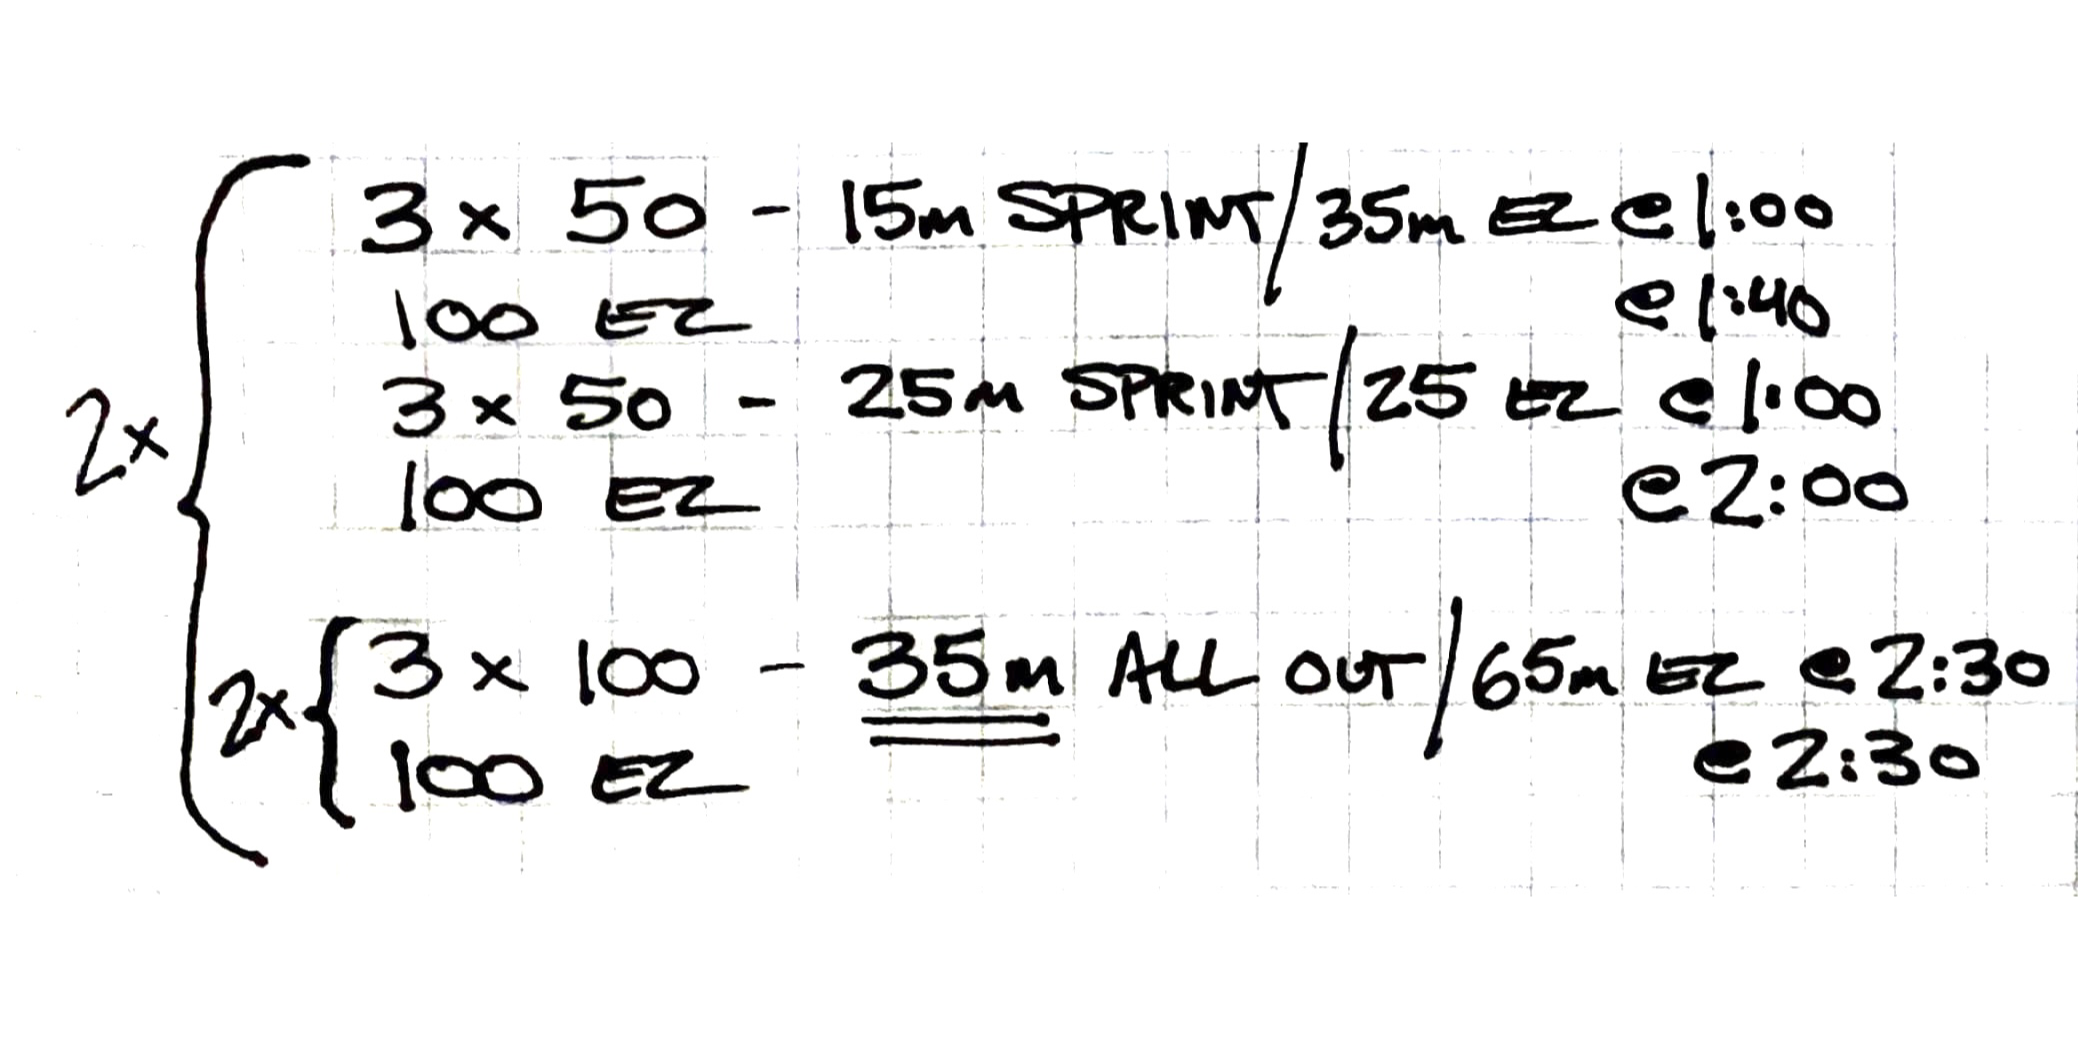 3 x 50 - 15m SPRINT/35m EZ @1:00
100 EZ @1:40
3 x 50 - 25m SPRINT/25 EZ @1:00
2x
100 EZ @2:00
2x 3 x 100 - 35m ALL OUT/65m EZ @2:30
100 EZ @2:30